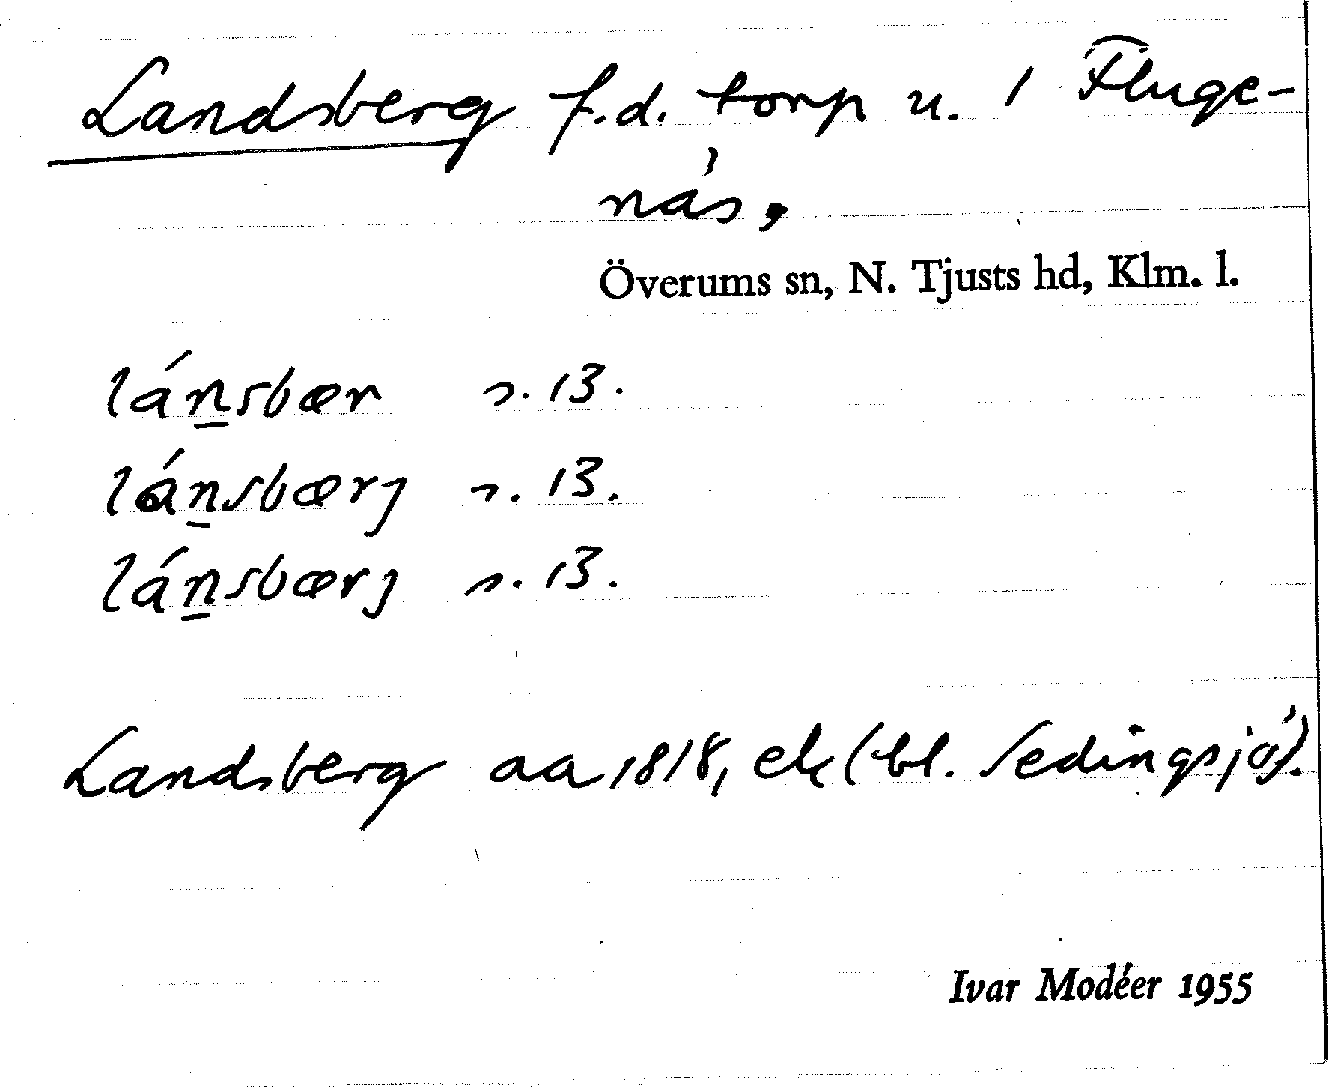 Landsberg f.d. torp u. 1 Fluge-
näs,
Överums sn, N. Tjusts hd, Klm. l.
lánsbær s. 13.
lánsbærj s. 13.
lánsbærj s. 13.
Landsberg aa 1818, ek (bl. Sedingsjö).
Ivar Modéer 1955